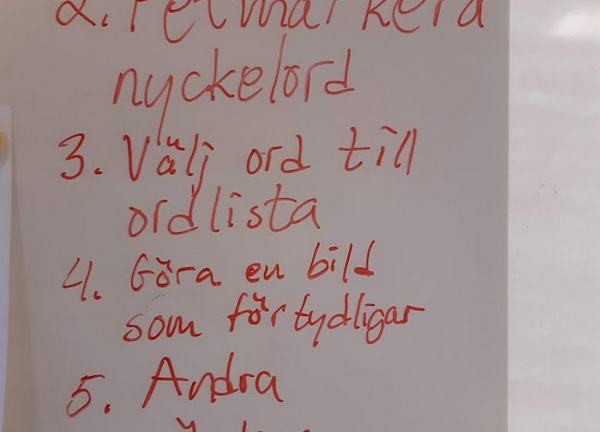 2. Fetmarkera
nyckelord
3. Välj ord till
ordlista
4. Göra en bild
som förtydligar
5. Andra